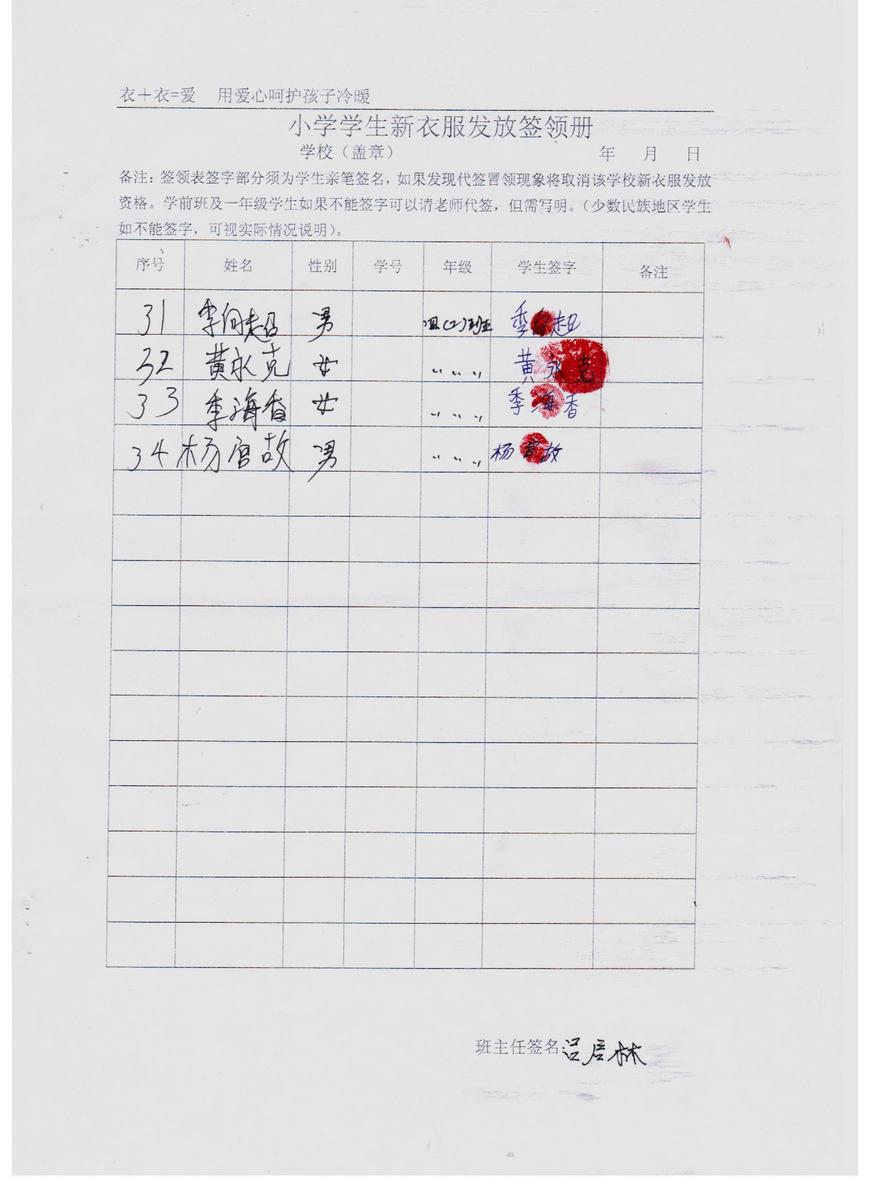 衣＋衣=爱 用爱心呵护孩子冷暖
小学学生新衣服发放签领册
学校（盖章） 年 月 日
备注：签领表签字部分须为学生亲笔签名，如果发现代签冒领现象将取消该学校新衣服发放
资格。学前班及一年级学生如果不能签字可以请老师代签，但需写明。（少数民族地区学生
如不能签字，可视实际情况说明）。
序号 姓名 性别 学号 年级 学生签字 备注
31 季向超 男 四(2)班 季向超
32 黄永克 女 〃 〃 〃 黄永克
33 季海香 女 〃 〃 〃 季海香
34 杨官故 男 〃 〃 〃 杨官故
班主任签名:吕启林